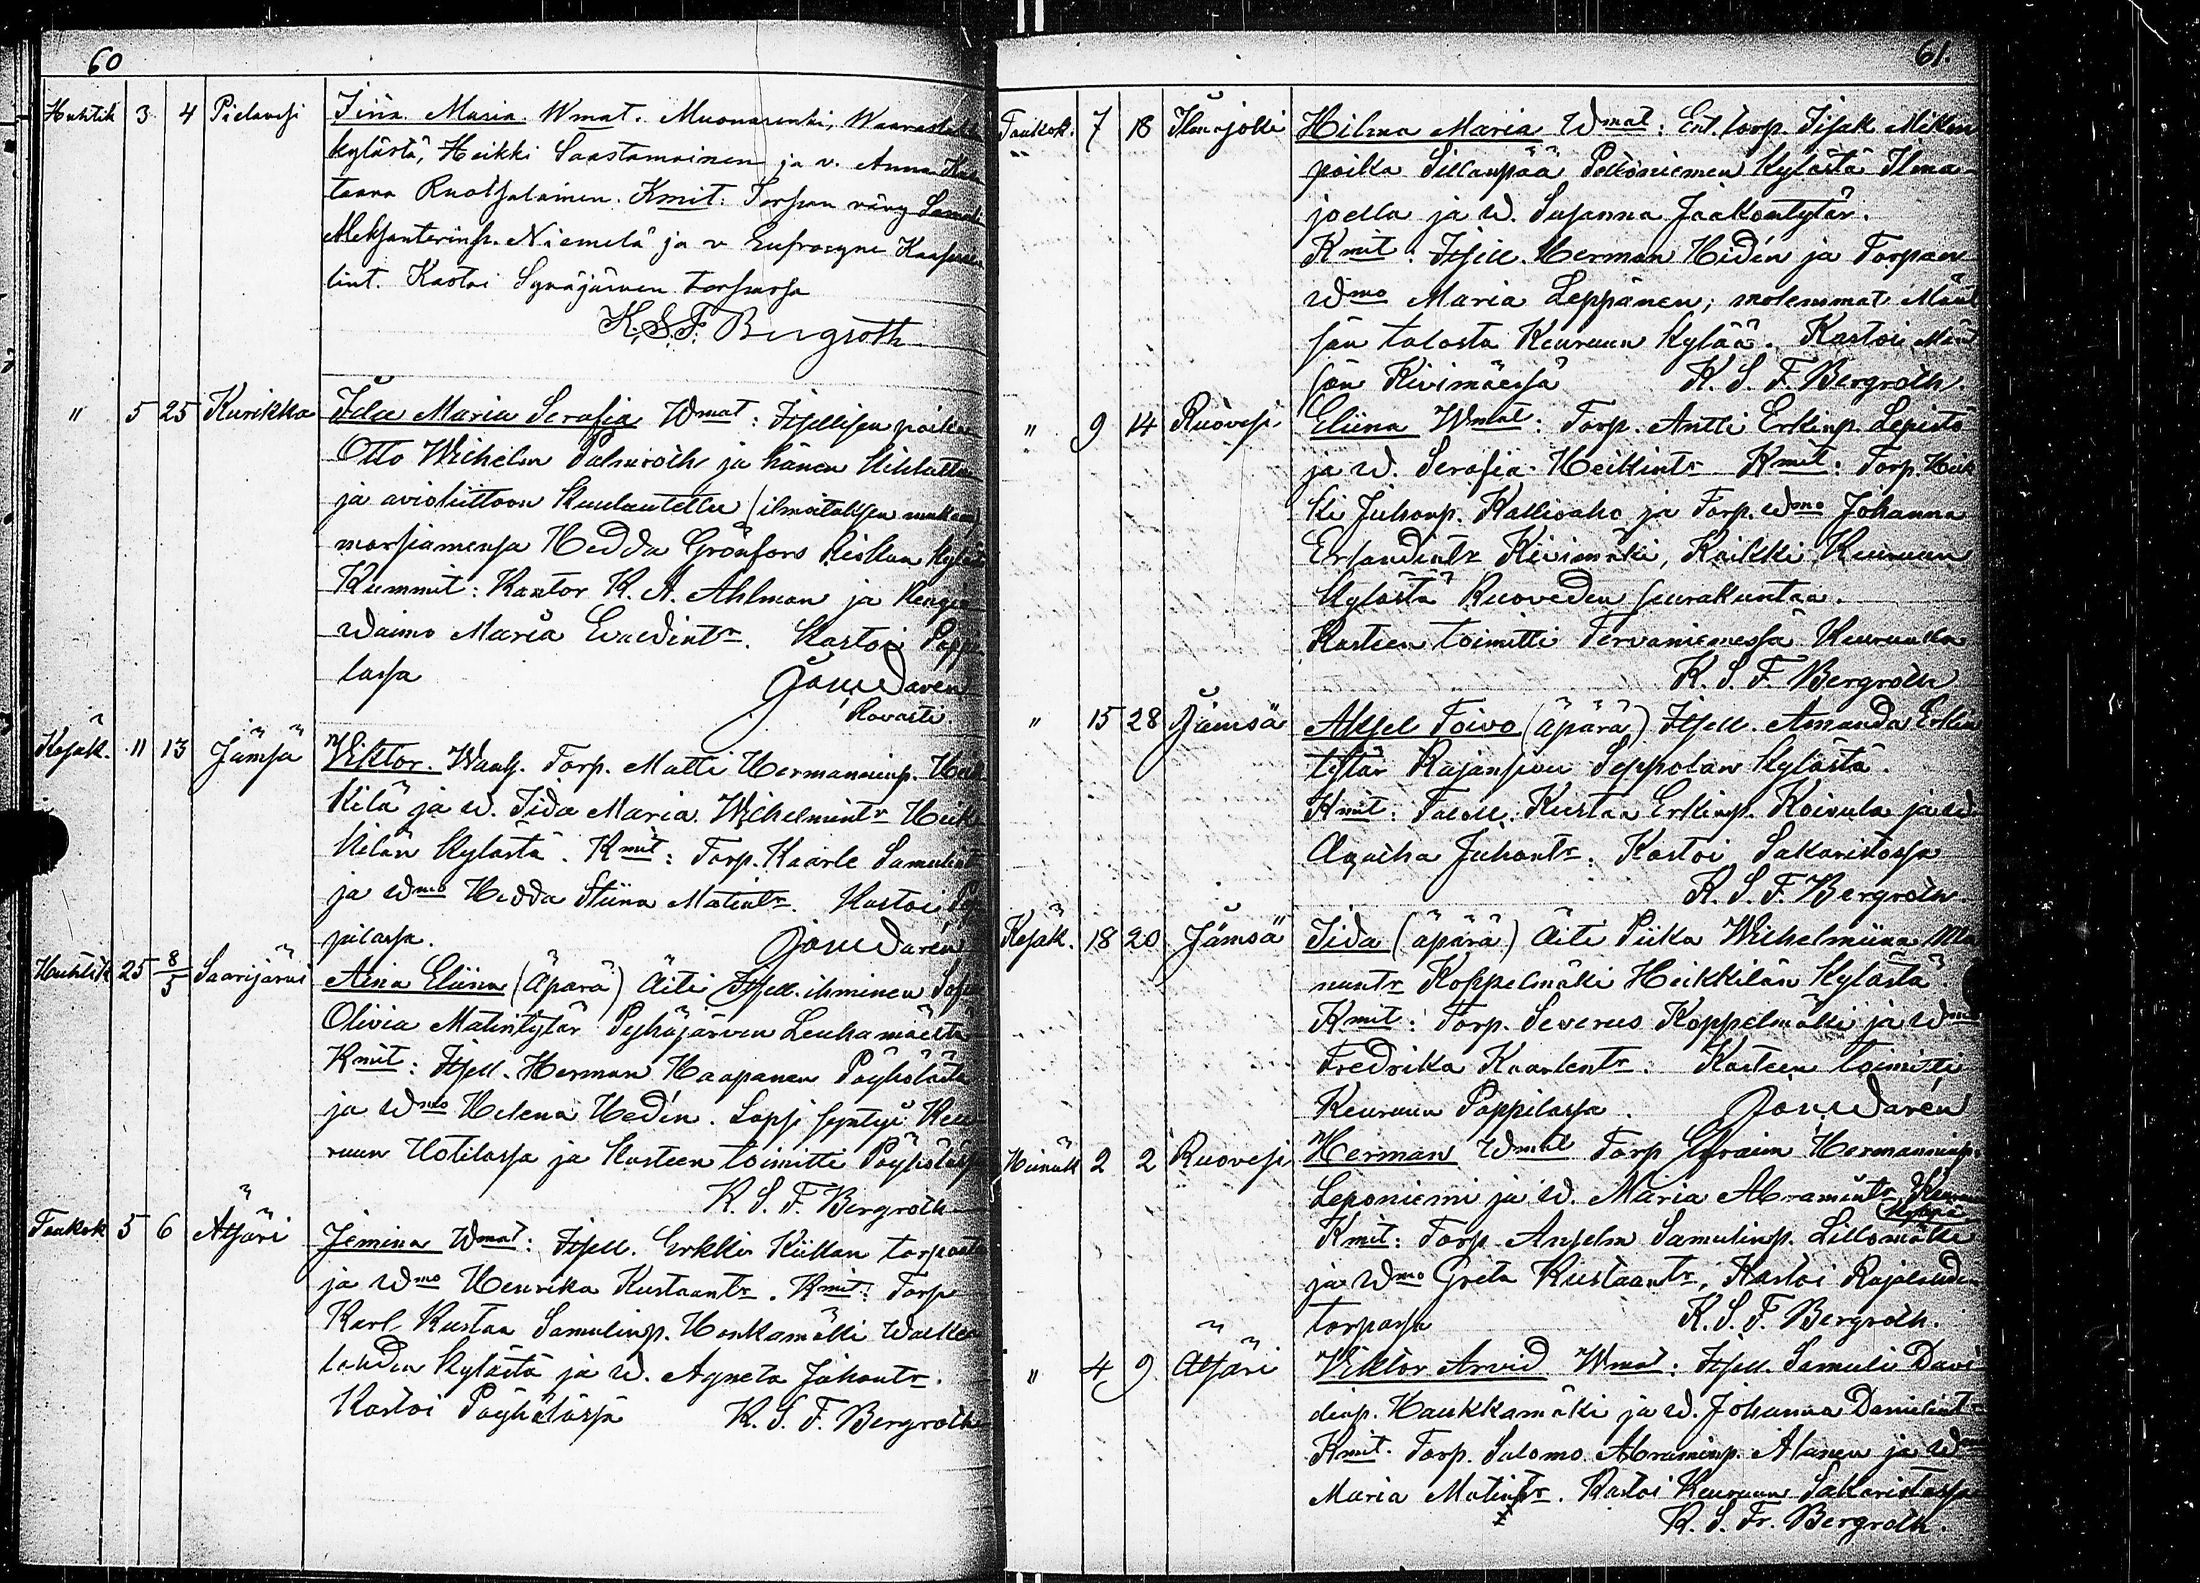 60
Huhtik 3 4 Pielavesi Iina Maria. Wmat. Muonarenki,
kylästä, Heikki Saastamoinen ja v. Anna
taava Ruotsalainen. Kmit: Torpan
Aleksanterinp. Niemelä ja v Eufrosyne
tint. Kastoi Synäjärven torpassa
K. S. F. Bergroth
" 5 25 Kurikka Ida Maria Serafia Wmat: Itsellisen poika
Otto Wilhelm Palmroth ja hänen kihlattu
ja avioliittoon kuulutettu (ilmoituksen mukaan)
morsiamensa Hedda Grönfors
Kummit: Kantor K. A. Ahlman ja Rengin
waimo Maria Evaedintr. Kastoi Pappi
lassa
Rovasti
Kesäk. 11 13 Jämsä Viktor. Wanh. Torp. Matti Hermanninp. Heik
kilä ja w. Iida Maria Wilhelmintr Heik
kilän kylästä. Kmit: Torp. Kaarle
ja wmo Hedda Stiina Matintr. Kastoi Pap
pilassa.
Huhtik 25 8/5 Saarijärvi Aina Eliina (Äpärä) Äiti Itsell. ihminen
Olivia Matintytär Pyhäjärven Leuhamäeltä
Kmit: Itsell. Herman Haapanen
ja wmo Helena Hedin. Lapsi syntyi Keu
ruun Hotilassa ja kasteen toimitti
K. S. F. Bergroth
Toukok 5 6 Atsäri Jemina Wmat: Itsell. Erkki Kiikan torpasta
ja wmo Henrika Kustaantr. Kmit: Torp
Karl Kustaa Samulinp. Honkamäki
kylästä ja w. Agneta Juhontr.
Kastoi Pöyhölässä K. S. F. Bergroth
61.
Toukok. 7 18 Ilmajoki Hilma Maria Wmat: Ent. torp. Iisak Mikin
poika Sillanpää Peltoniemen kylästä Ilma-
joella ja w. Susanna Jaakontytär.
Kmit: Itsell. Herman Hedin ja Torpan
wmo Maria Leppänen; molemmat Mänt
sän talosta Keuruun kylää. Kastoi Mänt
sän Kivimäessä K. S. F. Bergroth.
" 9 14 Ruovesi Eliina Wmat: Torp. Antti Erkinp. Lepistö
ja w. Serafia Heikintr Kmit: Torp. Heik
ki Juhonp. Kallioaho ja Torp. wmo Johanna
Erlandintr Kivimäki, Kaikki Keuruun
kylästä Ruoveden seurakuntaa.
Kasteen toimitti Tervaniemessä Keuruulla
K. S. F. Bergroth
" 15 28 Jämsä Aksel Toivo (äpärä) Itsell. Amanda Erkin
tytär Rajansuu Seppolan kylästä.
Kmit: Taloll. Kustaa Erkinp. Koivula ja w
Agatha Juhontr. Kastoi Sakaristossa
K. S. F. Bergroth.
Kesäk. 18 20 Jämsä Iida (äpärä) Äiti Piika Wilhelmiina Ma
nuntr Koppelmäki Heikkilän kylästä.
Kmit: Torp. Severus Koppelmäki ja wmo
Fredrika Kaarlentr. Kasteen toimitti
Keuruun Pappilassa.
Heinäk 2 2 Ruovesi Herman Wmat Torp Efraim Hermanninp.
Leponiemi ja w. Maria Abramintr
Kmit: Torp. Anselm Samulinp.
ja wmo Greta Kustaantr, Kastoi
torpassa K. S. F. Bergroth.
" 4 9 Atsäri Viktor Arvid Wmat: Itsell. Samuli Davi
dinp. Haukkamäki ja w. Johanna Danielintr
Kmit. Torp. Salomo Abraminp. Alanen ja wmo
Maria Matintr. Kastoi Keuruun Sakaristossa
K. S. Fr. Bergroth.